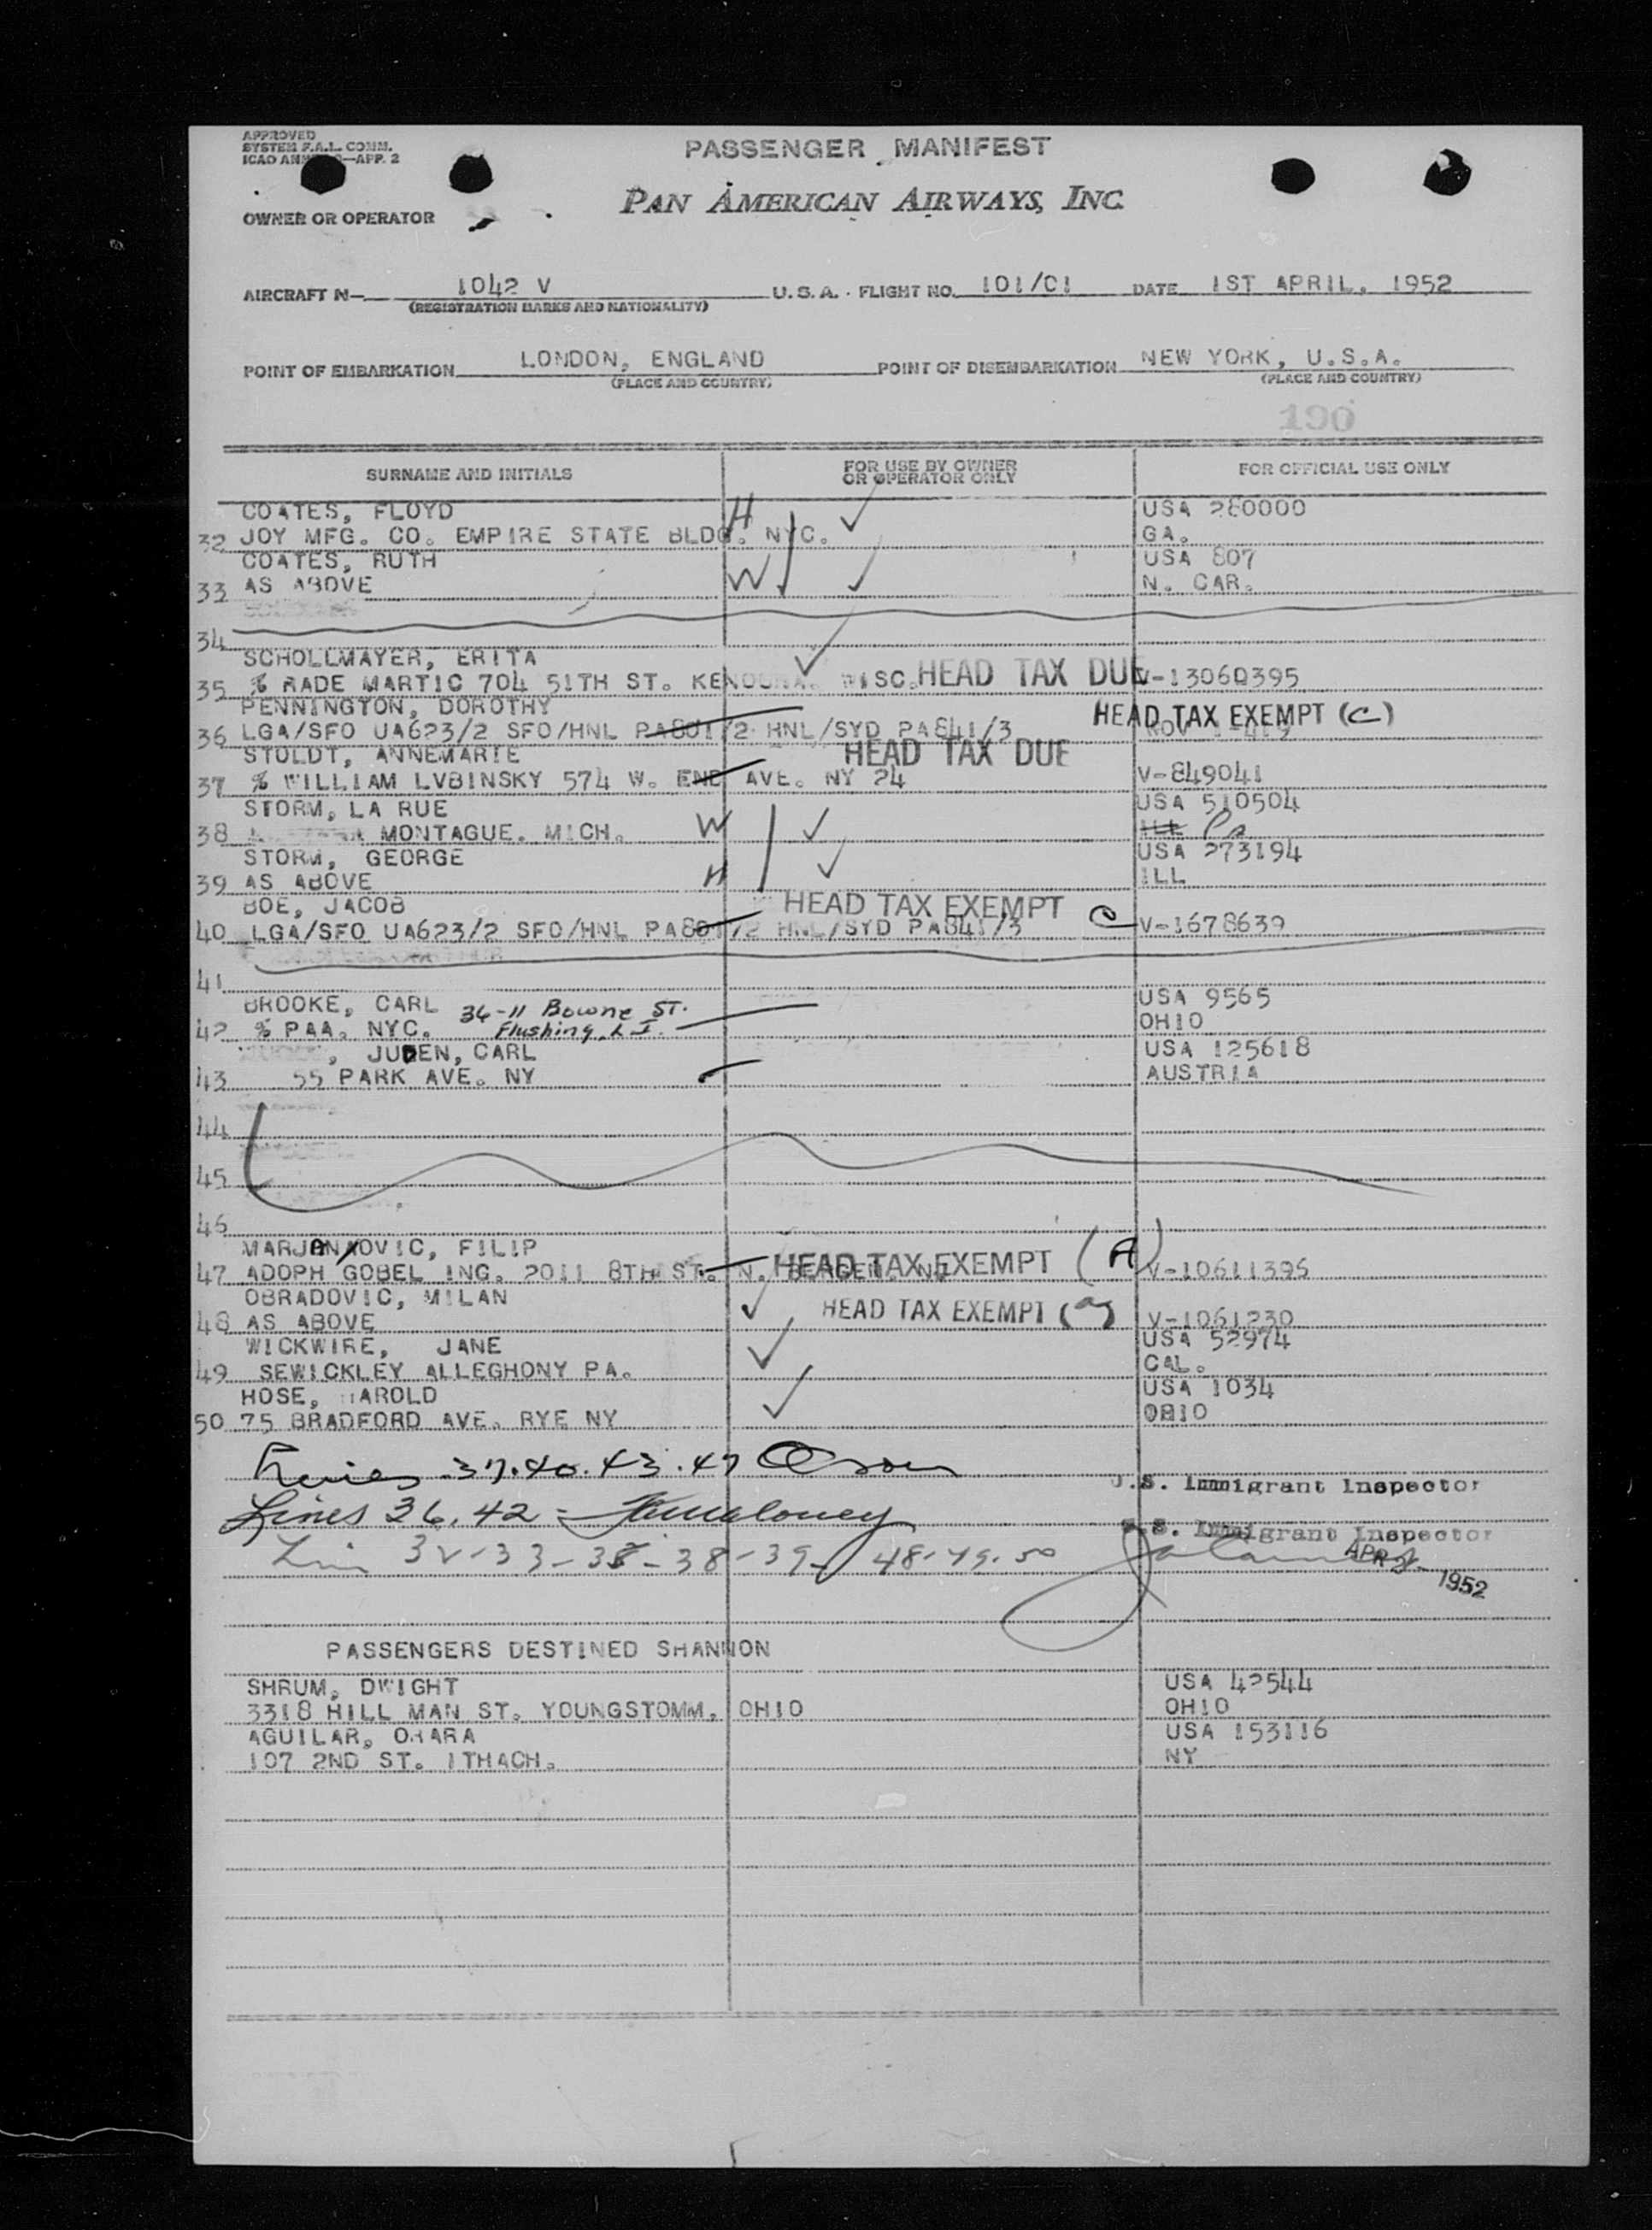 APPROVED
SYSTEM F.A.L. COMM.
ICAO —APP. 2
PASSENGER MANIFEST
PAN AMERICAN AIRWAYS, INC.
OWNER OR OPERATOR
AIRCRAFT N— 1042 V U.S.A. FLIGHT NO. 101/01 DATE 1ST APRIL, 1952
(REGISTRATION MARKS AND NATIONALITY)
POINT OF EMBARKATION LONDON, ENGLAND POINT OF DISEMBARKATION NEW YORK, U.S.A.
(PLACE AND COUNTRY) (PLACE AND COUNTRY)
190
SURNAME AND INITIALS FOR USE BY OWNER OR OPERATOR ONLY FOR OFFICIAL USE ONLY
COATES, FLOYD H USA 280000
32 JOY MFG. CO. EMPIRE STATE BLDG. NYC. GA.
COATES, RUTH USA 807
33 AS ABOVE W N. CAR.
34
SCHOLLMAYER, ERITA
35 % RADE MARTIC 704 51TH ST. WISC. HEAD TAX DUE V-13060395
PENNINGTON, DOROTHY HEAD TAX EXEMPT (C)
36 LGA/SFO UA623/2 SFO/HNL PA801/2 HNL/SYD PA841/3
STOLDT, ANNEMARIE HEAD TAX DUE
37 % WILLIAM LVBINSKY 574 W. END AVE. NY 24 V-849041
STORM, LA RUE USA 510504
38 MONTAGUE. MICH. W ILL Pa
STORM, GEORGE USA 273194
39 AS ABOVE H ILL
BOE, JACOB HEAD TAX EXEMPT C
40 LGA/SFO UA623/2 SFO/HNL PA801/2 HNL/SYD PA841/3 V-1678639
41
BROOKE, CARL 34-11 Bowne ST. USA 9565
42 % PAA. NYC. Flushing, L.I. OHIO
, JUDEN, CARL USA 125618
43 55 PARK AVE. NY AUSTRIA
44
45
46
MARJANOVIC, FILIP
47 ADOPH GOBEL ING. 2011 8TH ST. N. BERGEN. NJ HEAD TAX EXEMPT (A) V-10611395
OBRADOVIC, MILAN HEAD TAX EXEMPT (a)
48 AS ABOVE V-1061230
WICKWIRE, JANE USA 52974
49 SEWICKLEY ALLEGHONY PA. CAL.
HOSE, HAROLD USA 1034
50 75 BRADFORD AVE. RYE NY OHIO
Lines 37.40.43.47
U.S. Immigrant Inspector
Lines 36, 42 =
U.S. Immigrant Inspector
32-33-35-38-39- 48-49-50
APR 2 1952
PASSENGERS DESTINED SHANNON
SHRUM, DWIGHT USA 42544
3318 HILL MAN ST. YOUNGSTOMM, OHIO OHIO
AGUILAR, OHARA USA 153116
107 2ND ST. ITHACH. NY